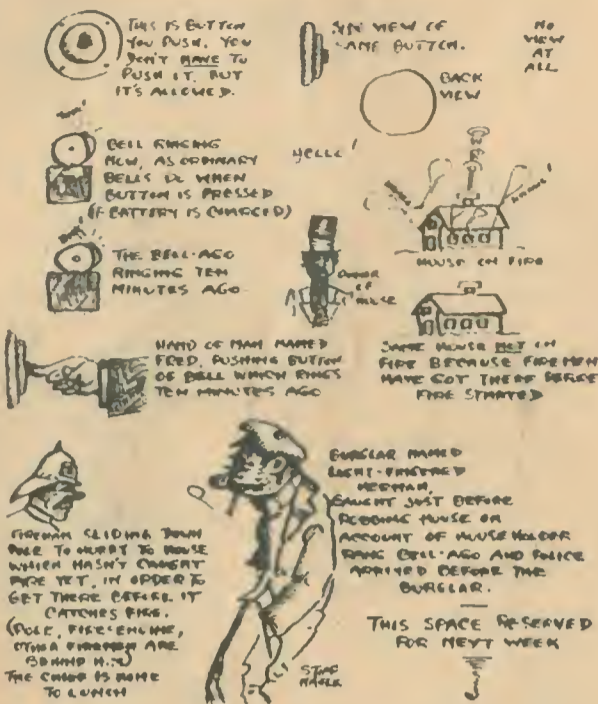 THIS IS BUTTON
YOU PUSH. YOU
DON'T HAVE TO
PUSH IT, BUT
IT'S ALLOWED.
SIDE VIEW OF
SAME BUTTON.
NO
VIEW
AT
ALL
BACK
VIEW
BELL RINGING
NOW, AS ORDINARY
BELLS DO WHEN
BUTTON IS PRESSED
(IF BATTERY IS CHARGED)
HELLO!
HOUSE ON FIRE
THE BELL-AGO
RINGING TEN
MINUTES AGO
OWNER
OF
HOUSE
SAME HOUSE NOT ON
FIRE BECAUSE FIREMEN
HAVE GOT THERE BEFORE
FIRE STARTED
HAND OF MAN NAMED
FRED, PUSHING BUTTON
OF BELL WHICH RINGS
TEN MINUTES AGO
FIREMAN SLIDING DOWN
POLE TO HURRY TO HOUSE
WHICH HASN'T CAUGHT
FIRE YET, IN ORDER TO
GET THERE BEFORE IT
CATCHES FIRE.
(POLE, FIRE-ENGINE,
OTHER FIREMEN ARE
BEHIND HIM)
THE CHIEF IS HOME
TO LUNCH
BURGLAR NAMED
LIGHT-FINGERED
HERMAN,
CAUGHT JUST BEFORE
ROBBING HOUSE ON
ACCOUNT OF HOUSEHOLDER
RANG BELL-AGO AND POLICE
ARRIVED BEFORE THE
BURGLAR.
THIS SPACE RESERVED
FOR NEXT WEEK